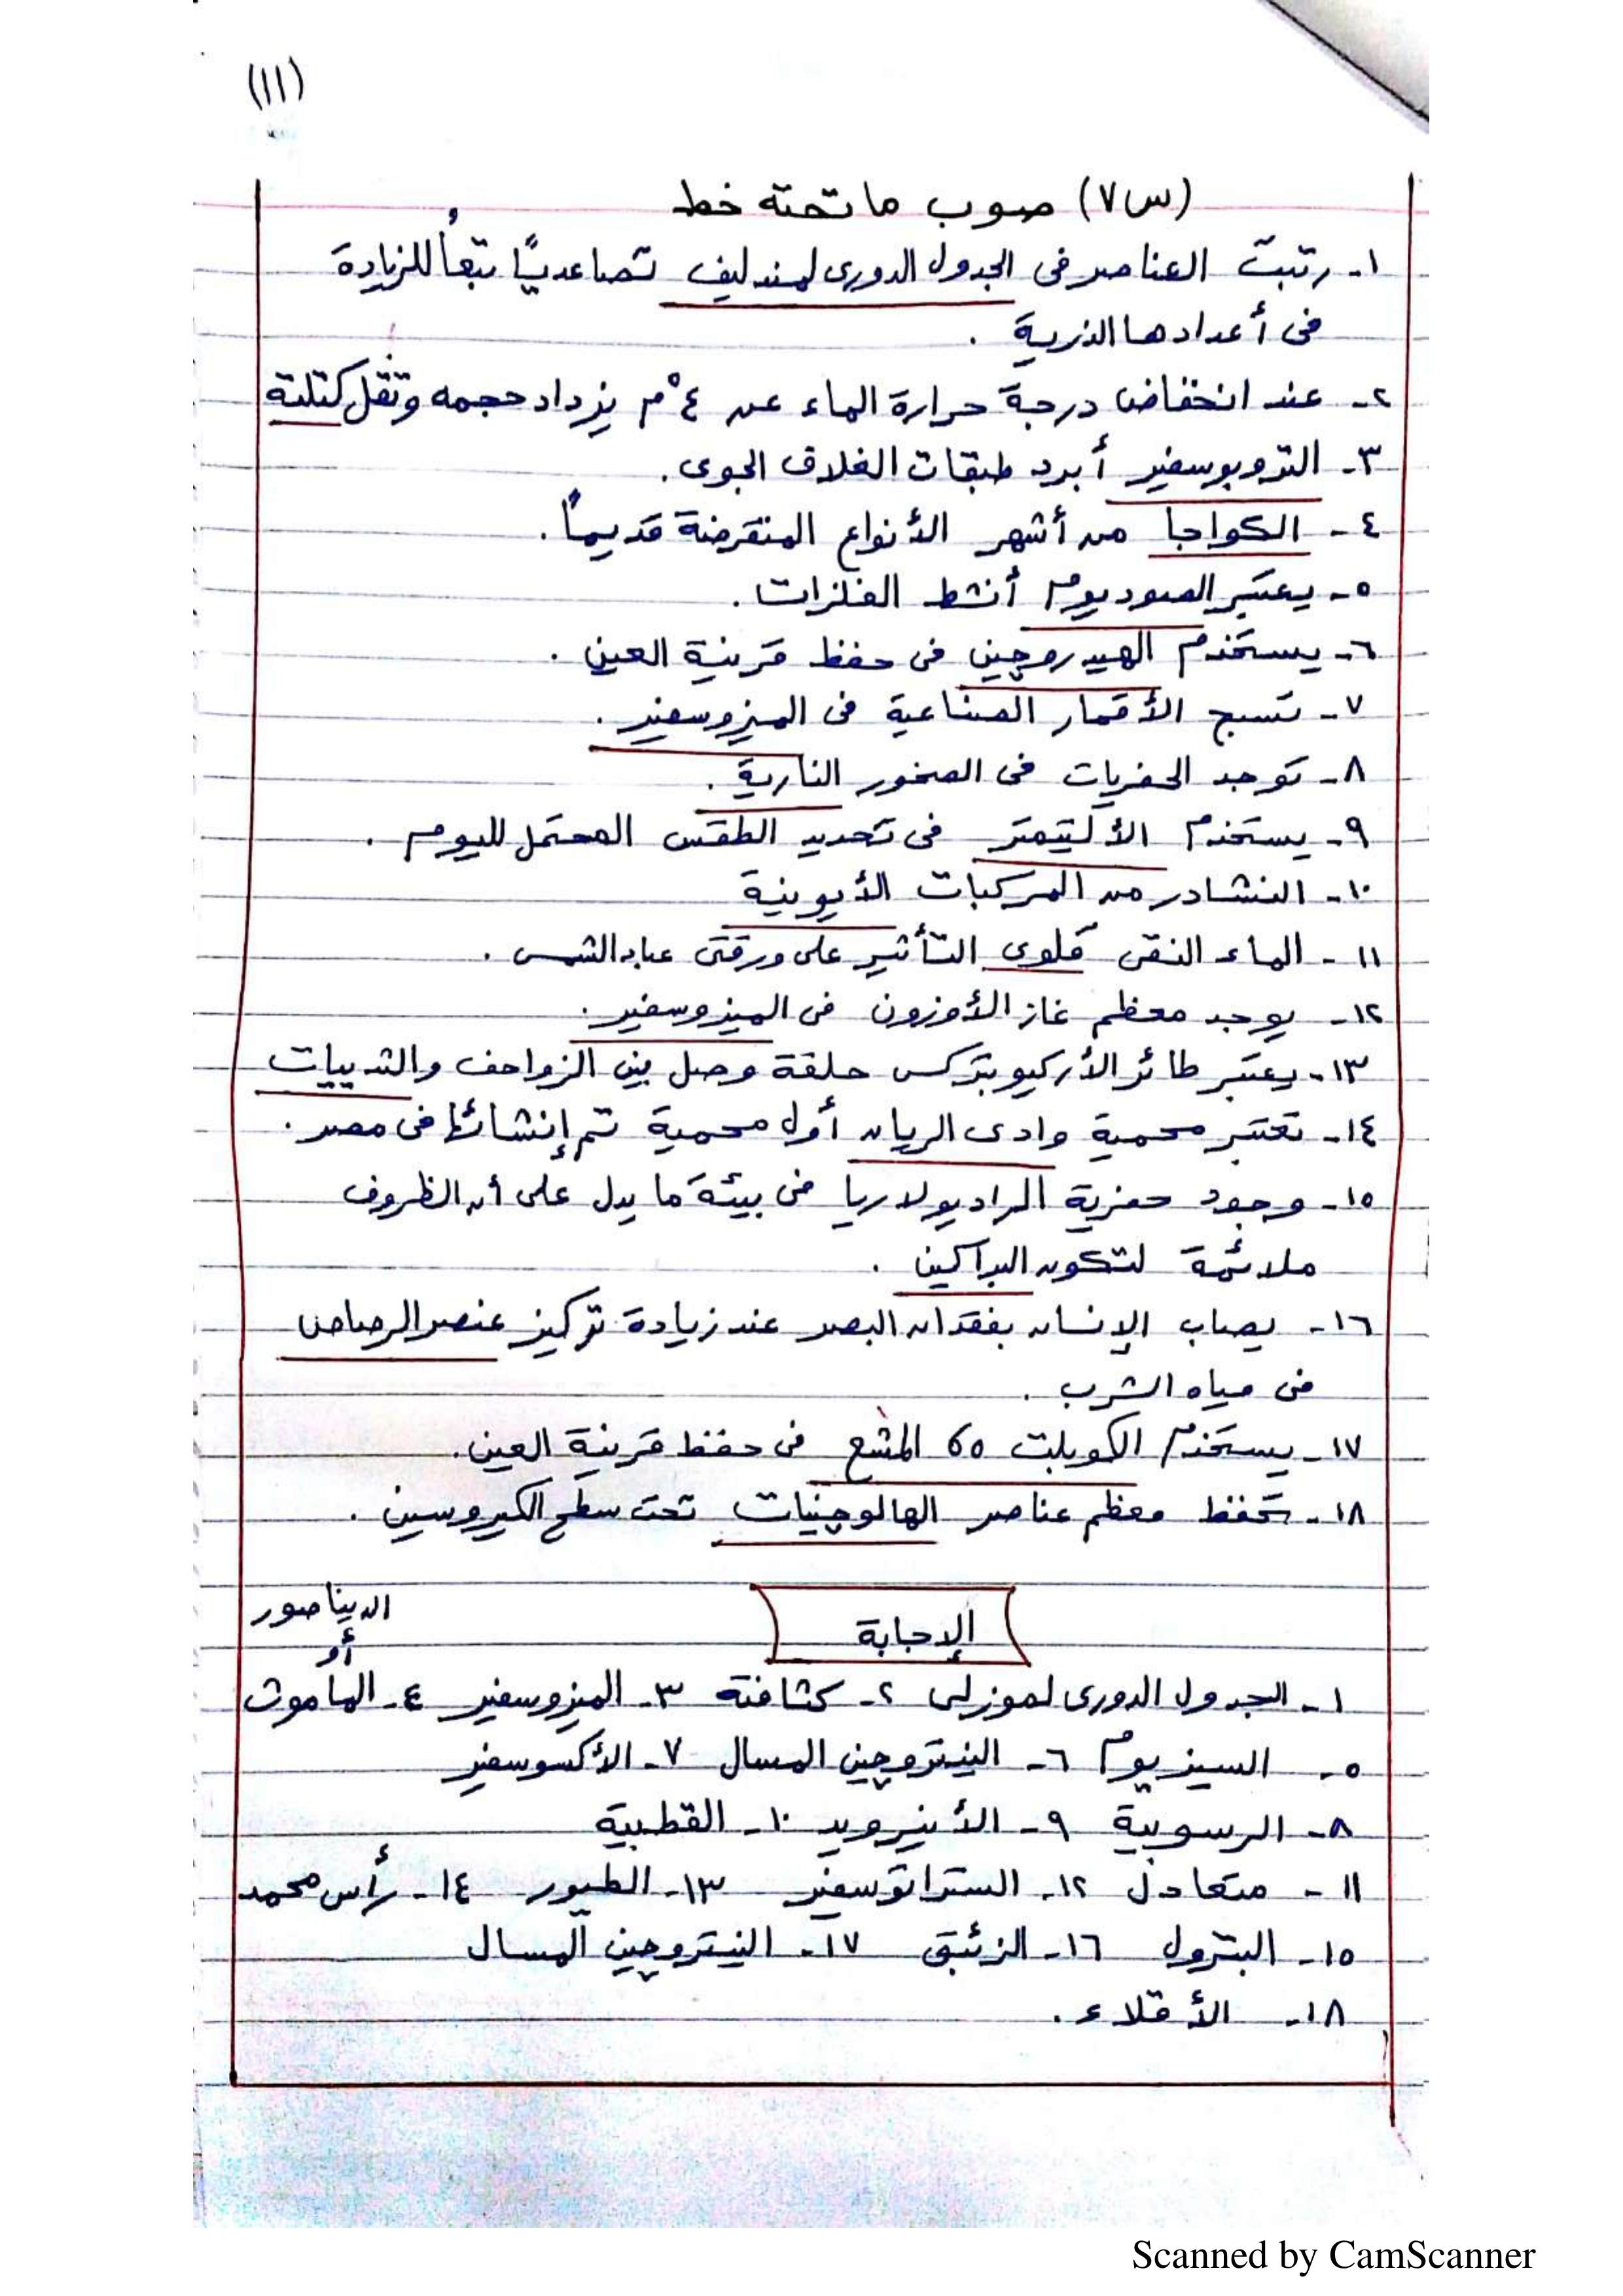 (١١)
(س٧) صوب ما تحته خط
١- رتبت العناصر فى الجدول الدورى لمندليف تصاعديًا تبعاً للزيادة
فى أعدادها الذرية .
٢- عند انخفاض درجة حرارة الماء عن ٤°م يزداد حجمه وتقل كتلته
٣- التروبوسفير أبرد طبقات الغلاف الجوى .
٤- الكواجا من أشهر الأنواع المنقرضة قديماً .
٥- يعتبر الصوديوم أنشط الفلزات .
٦- يستخدم الهيدروجين فى حفظ قرنية العين .
٧- تسبح الأقمار الصناعية فى الميزوسفير .
٨- توجد الحفريات فى الصخور النارية .
٩- يستخدم الألتيمتر فى تحديد الطقس المحتمل لليوم .
١٠- النشادر من المركبات الأيونية
١١- الماء النقى قلوى التأثير على ورقتى عباد الشمس .
١٢- يوجد معظم غاز الأوزون فى الميزوسفير .
١٣- يعتبر طائر الأركيوبتركس حلقة وصل بين الزواحف والثدييات
١٤- تعتبر محمية وادى الريان أول محمية تم إنشائها فى مصر .
١٥- وجود حفرية الراديولاريا فى بيئة ما يدل على أن الظروف
ملائمة لتكون البراكين .
١٦- يصاب الإنسان بفقدان البصر عند زيادة تركيز عنصر الرصاص
فى مياه الشرب .
١٧- يستخدم الكوبلت 60 المشع فى حفظ قرنية العين .
١٨- تحفظ معظم عناصر الهالوچينات تحت سطح الكيروسين .
الإجابة
الديناصور
أو
١- الجدول الدورى لموزلى ٢- كثافته ٣- الميزوسفير ٤- الماموث
٥- السيزيوم ٦- النيتروچين المسال ٧- الأكسوسفير
٨- الرسوبية ٩- الأنيرويد ١٠- القطبية
١١- متعادل ١٢- الستراتوسفير ١٣- الطيور ١٤- رأس محمد
١٥- البترول ١٦- الزئبق ١٧- النيتروچين المسال
١٨- الأقلاء .
Scanned by CamScanner